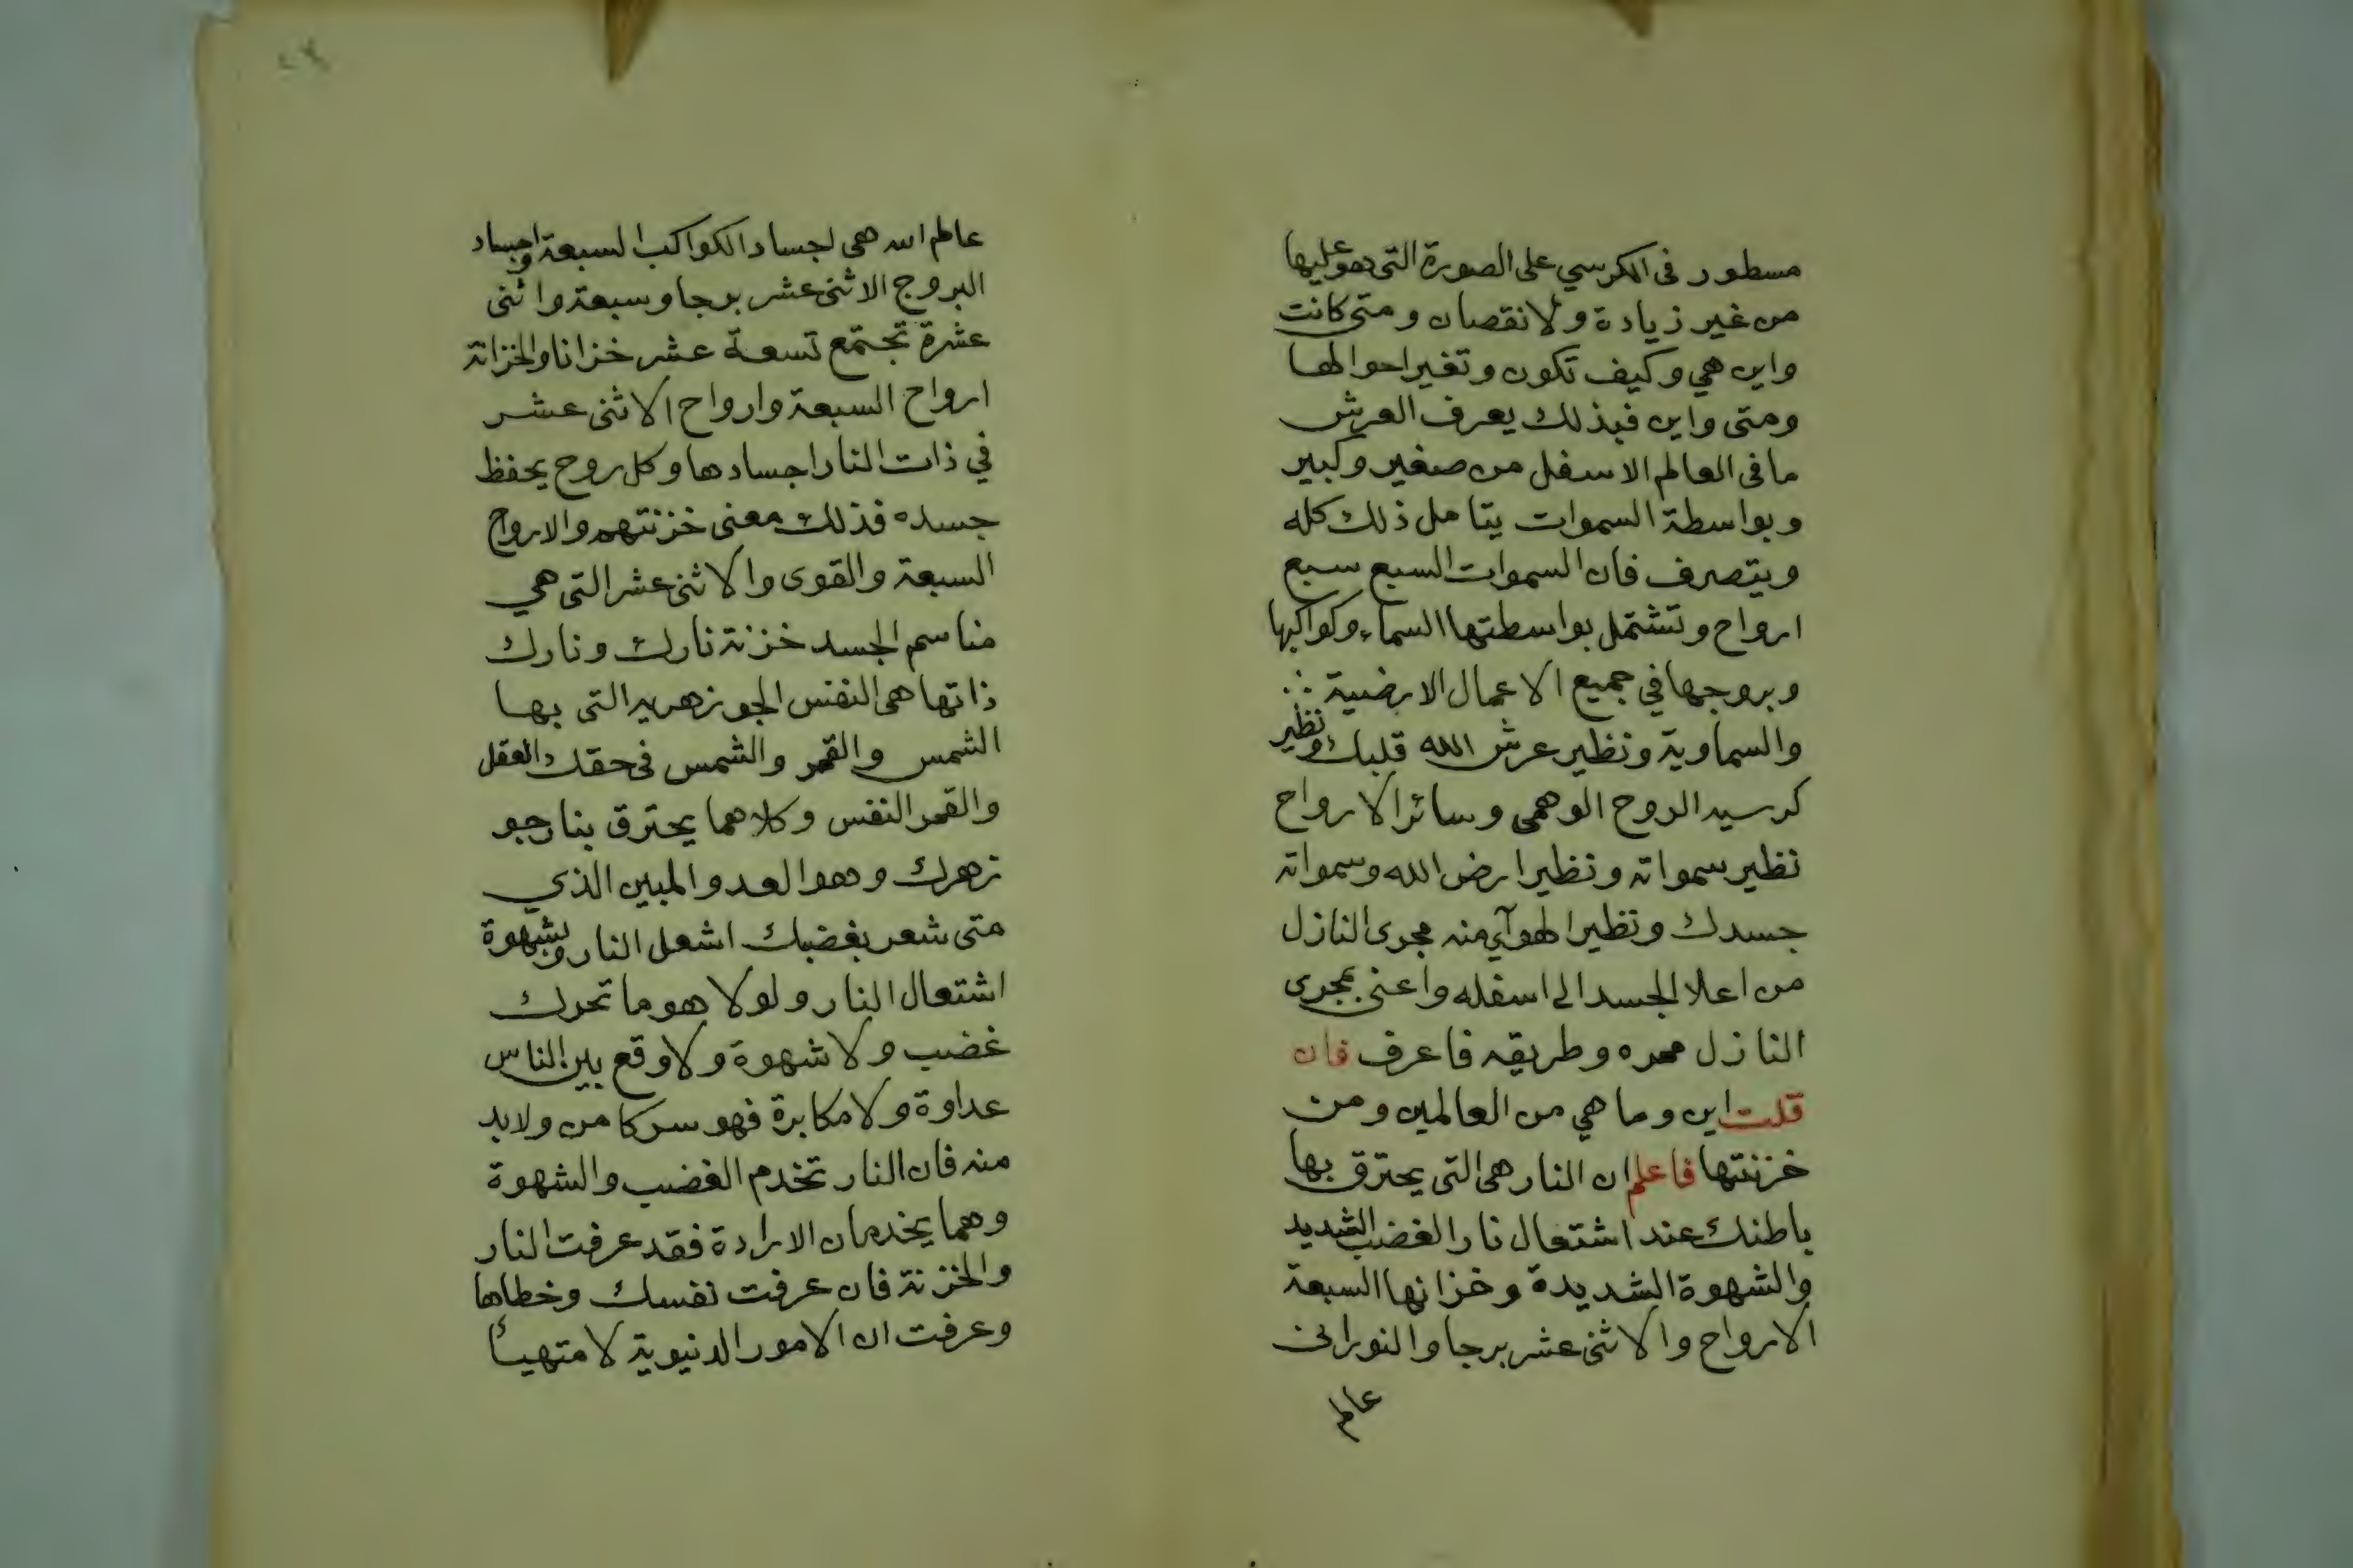 مسطور في الكرسي على الصورة التى هو عليها
من غير زيادة ولا نقصان ومتى كانت
واين هي وكيف تكون وتغير احوالها
ومتى واين فبذلك يعرف العرش
ما فى العالم الاسفل من صغير وكبير
وبواسطة السموات يتامل ذلك كله
ويتصرف فان السموات السبع سبع
ارواح وتشتمل بواسطتها السماء وكواكبها
وبروجها في جميع الاعمال الارضية ∴
والسماوية ونظير عرش الله قلبك ونظير
كرسيه الروح الوهمى وسائر الارواح
نظير سمواته ونظير ارض الله وسمواته
جسدك ونظير الهوآي منه مجرى النازل
من اعلا الجسد الى اسفله واعنى بمجرى
النازل ممره وطريقه فاعرف فان
قلت اين وما هي من العالمين ومن
خزنتها فاعلم ان النار هى التى يحترق بها
باطنك عند اشتعال نار الغضب الشديد
والشهوة الشديدة وخزانها السبعة
الارواح والاثنى عشر برجا والنورانى
عالم
عالم الله هى اجساد الكواكب السبعة واجساد
البروج الاثنى عشر برجا وسبعة واثنى
عشرة تجتمع تسعة عشر خزانا والخزانة
ارواح السبعة وارواح الاثنى عشر
في ذات النار اجسادها وكل روح يحفظ
جسده فذلك معنى خزنتهم والارواح
السبعة والقوى والاثنى عشر التى هي
مناسم الجسد خزنة نارك ونارك
ذاتها هى النفس الجوزهريه التى بها
الشمس والقمر والشمس فى حقك العقل
والقمر النفس وكلاهما يحترق بنار جو
زهرك وهو العدو المبين الذي
متى شعر بغضبك اشعل النار وبشهوة
اشتعال النار ولولا هو ما تحرك
غضب ولا شهوة ولا وقع بين الناس
عداوة ولا مكابرة فهو سر كامن ولابد
منه فان النار تخدم الغضب والشهوة
وهما يخدمان الارادة فقد عرفت النار
والخزنة فان عرفت نفسك وخطاها
وعرفت ان الامور الدنيوية لا متهيأ